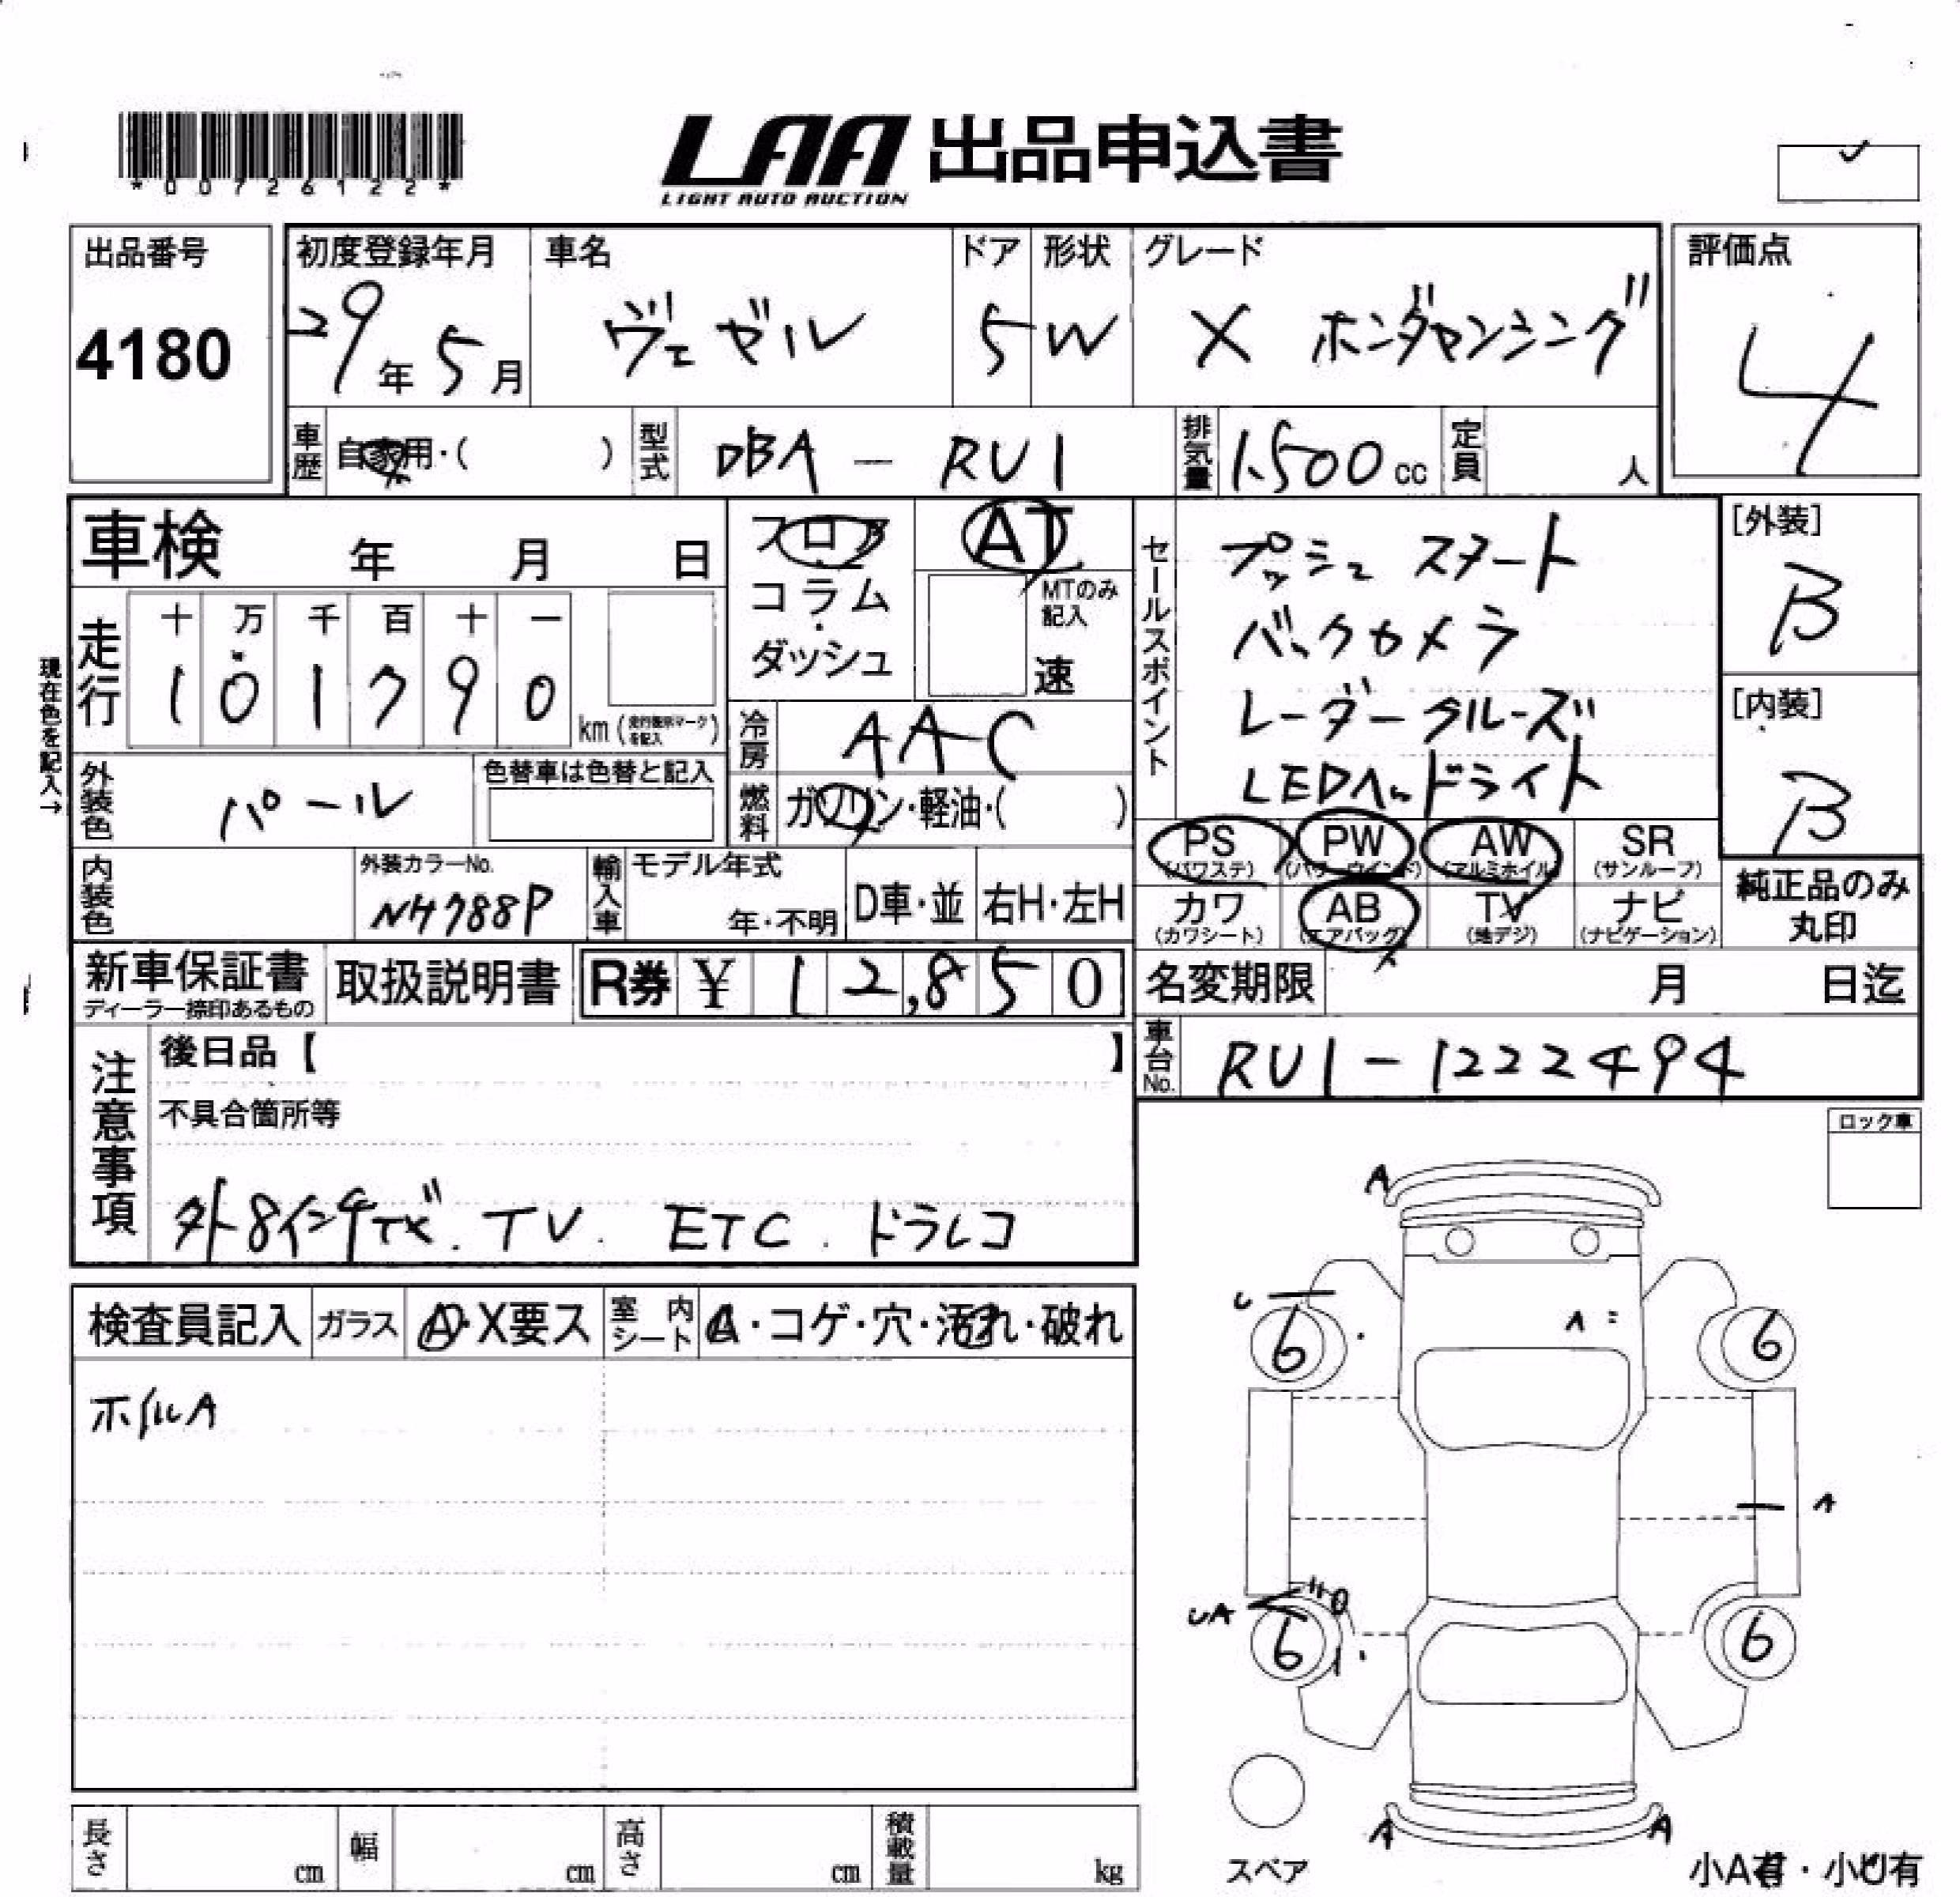 *00726122*
LAA 出品申込書
LIGHT AUTO AUCTION
出品番号
4180
初度登録年月
29年 5月
車名
ヴェゼル
ドア
5
形状
W
グレード
X ホンダセンシング
評価点
4
車歴
自家用・( )
型式
DBA - RU1
排気量
1.500 cc
定員
人
車検 年 月 日
フロア
コラム
ダッシュ
AT
MTのみ
記入
速
セールスポイント
プッシュ スタート
バックカメラ
レーダークルーズ
LEDヘッドライト
[外装]
B
[内装]
B
現在色を記入→
走行
十 万 千 百 十 一
1 0 1 7 9 0
km (走行表示マークを記入)
冷房
AAC
燃料
ガソリン・軽油・( )
外装色
パール
色替車は色替と記入
PS
(パワステ)
PW
(パワーウインド)
AW
(アルミホイル)
SR
(サンルーフ)
カワ
(カワシート)
AB
(エアバッグ)
TV
(地デジ)
ナビ
(ナビゲーション)
純正品のみ
丸印
内装色
外装カラーNo.
NH788P
輸入車
モデル年式
年・不明
D車・並
右H・左H
新車保証書
ディーラー捺印あるもの
取扱説明書
R券 ¥ 1 2,8 5 0
名変期限 月 日迄
車台No.
RU1-1222494
注意事項
後日品【 】
不具合箇所等
外8インチナビ. TV. ETC. ドラレコ
ロック車
検査員記入
ガラス
A・X要ス
室内シート
A・コゲ・穴・汚れ・破れ
ホイルA
A
U
6
A
6
A
UA
6
6
A
A
スペア
小A有・小U有
長さ
cm
幅
cm
高さ
cm
積載量
kg